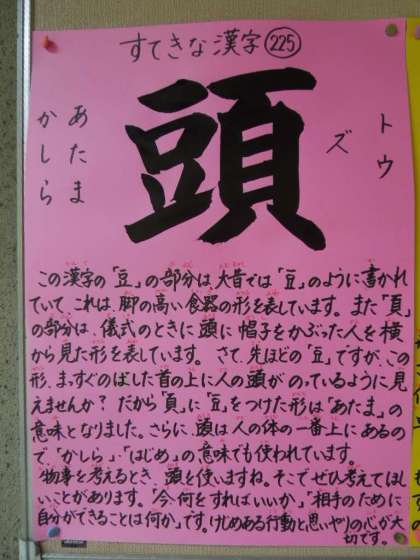 すてきな漢字 225
頭
トウ
ズ
あたま
かしら
この漢字の「豆」の部分は、大昔では「豆」のように書かれ
ていて、これは、脚の高い食器の形を表しています。また「頁」
の部分は、儀式のときに頭に帽子をかぶった人を横
から見た形を表しています。さて、先ほどの「豆」ですが、この
形、まっすぐのばした首の上に人の頭がのっているように見
えませんか？だから「頁」に「豆」をつけた形は「あたま」の
意味となりました。さらに、頭は人の体の一番上にあるの
で、「かしら」・「はじめ」の意味でも使われています。
物事を考えるとき、頭を使いますね。そこでぜひ考えてほし
いことがあります。「今、何をすればいいか」「相手のために
自分ができることは何か」です。けじめある行動と思いやりの心が大
切です。